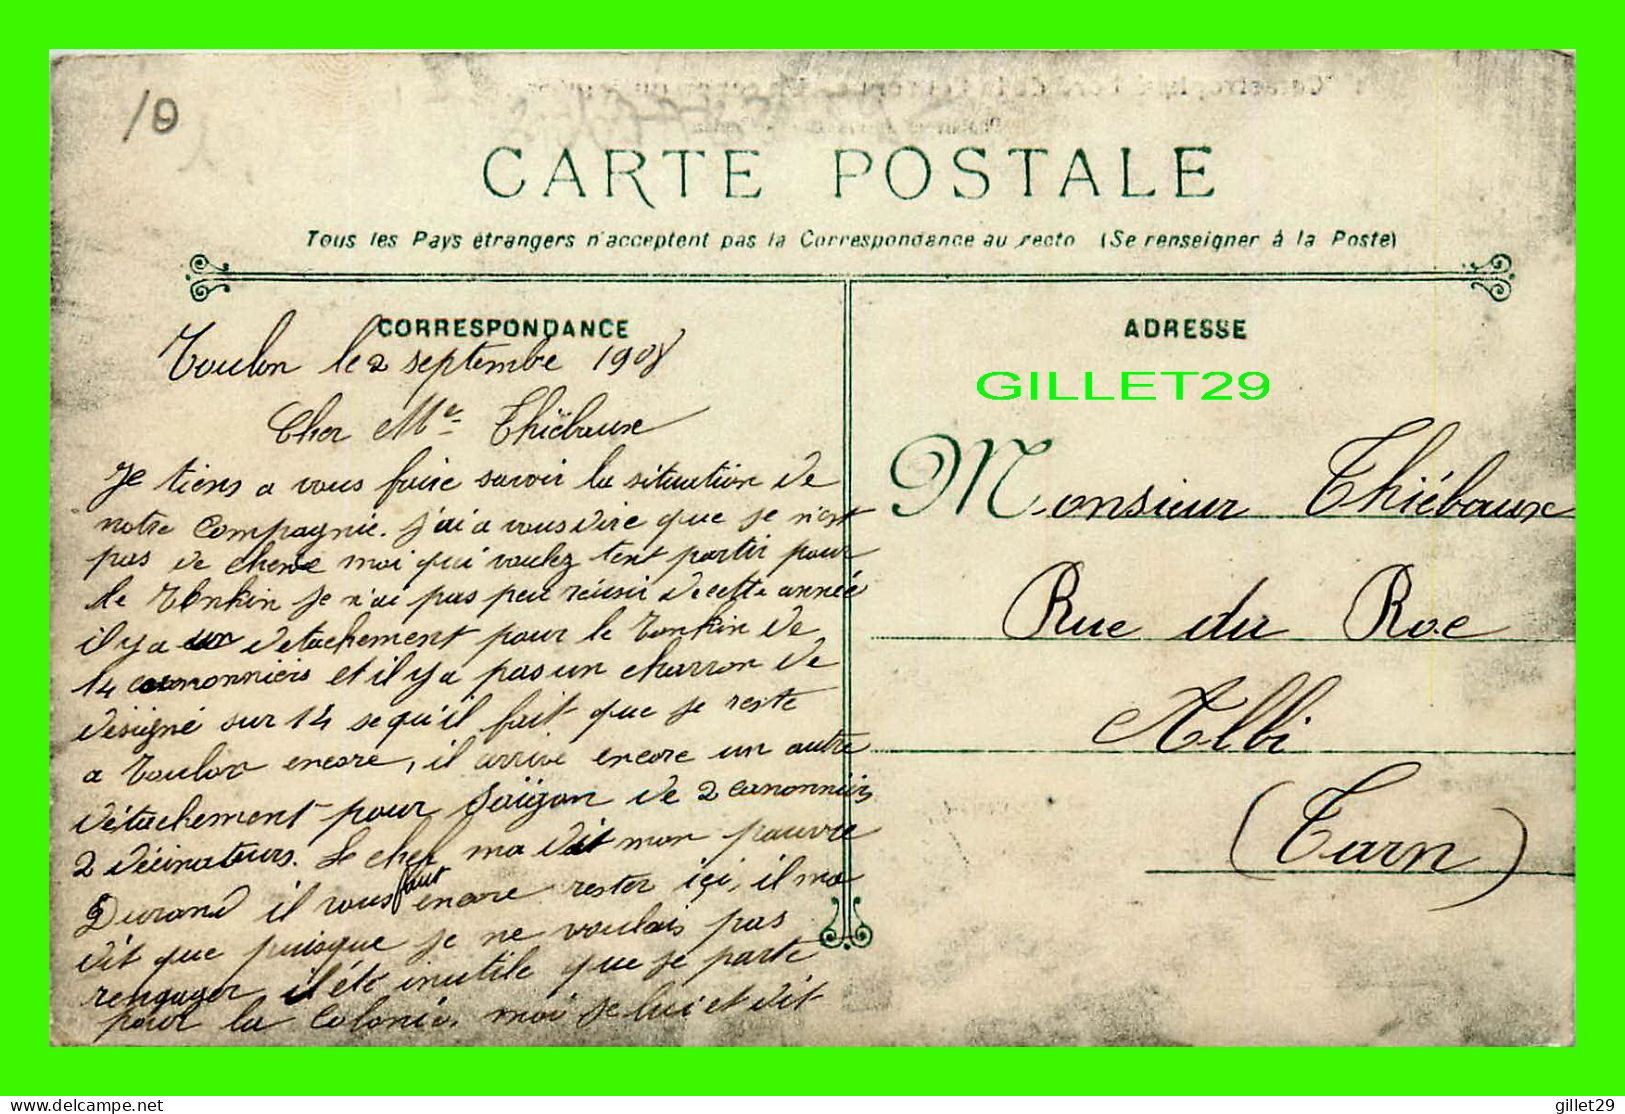 19
CARTE POSTALE
Tous les Pays étrangers n'acceptent pas la Correspondance au recto (Se renseigner à la Poste)
CORRESPONDANCE
Toulon le 2 septembre 1908
Cher Mr Thiëbaux
Je tiens a vous faire savoir la situation de
notre compagnie. J'ai a vous dire que je n'est
pas de chence moi qui voulez tent partir pour
le Tonkin je n'ai pas peu réusir de cette année
il y a un detachement pour le Tonkin de
14 canonniers et il y a pas un charron de
désigné sur 14 se qu'il fait que je reste
a Toulon encore, il arrive encore un autre
détachement pour Saïgon de 2 canonniers
2 décinateurs. Le chef ma dit mon pauvre
Durand il vous faut encore rester içi, il ma
dit que puisque je ne voulais pas
rengager il été inutile que je parte
pour la colonie. moi je lui et dit
ADRESSE
GILLET29
Monsieur Thiébaux
Rue du Roc
Albi
(Tarn)
delcampe.net
gillet29